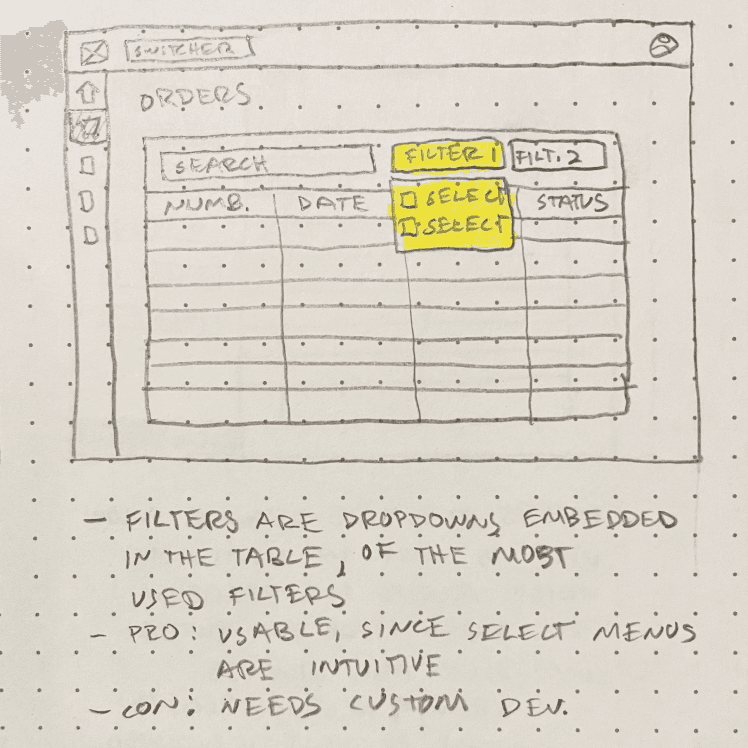 SWITCHER
ORDERS
SEARCH
FILTER 1
FILT. 2
NUMB.
DATE
SELECT
SELECT
STATUS
- FILTERS ARE DROPDOWNS EMBEDDED
IN THE TABLE, OF THE MOST
USED FILTERS
- PRO: USABLE, SINCE SELECT MENUS
ARE INTUITIVE
- CON: NEEDS CUSTOM DEV.